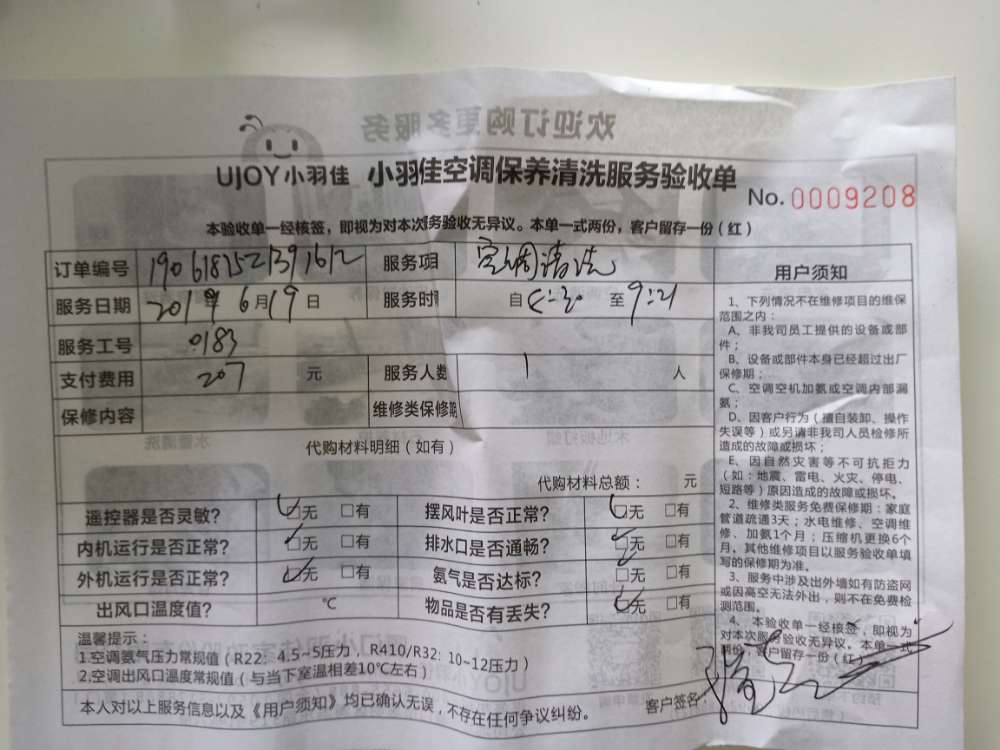 欢迎订购更多服务
UJOY小羽佳 小羽佳空调保养清洗服务验收单
No. 0009208
本验收单一经核签，即视为对本次服务验收无异议。本单一式两份，客户留存一份（红）
订单编号 服务项目 空调清洗
服务日期 2019年6月19日 服务时 自8:30 至9:21
服务工号 0183
支付费用 207 元 服务人数 1 人
保修内容 维修类保修期
代购材料明细（如有）
代购材料总额： 元
遥控器是否灵敏? □无 □有 摆风叶是否正常? □无 □有
内机运行是否正常? □无 □有 排水口是否通畅? □无 □有
外机运行是否正常? □无 □有 氨气是否达标? □无 □有
出风口温度值? ℃ 物品是否有丢失? □无 □有
温馨提示：
1.空调氨气压力常规值（R22：4.5~5压力，R410/R32: 10~12压力）
2.空调出风口温度常规值（与当下室温相差10℃左右）
本人对以上服务信息以及《用户须知》均已确认无误，不存在任何争议纠纷。 客户签名：
用户须知
1、下列情况不在维修项目的维保
范围之内：
A、非我司员工提供的设备或部
件；
B、设备或部件本身已经超过出厂
保修期；
C、空调空机加氨或空调内部漏
氨；
D、因客户行为（擅自装卸、操作
失误等）或另请非我司人员检修所
造成的故障或损坏；
E、因自然灾害等不可抗拒力
（如：地震、雷电、火灾、停电、
短路等）原因造成的故障或损坏。
2、维修类服务免费保修期：家庭
管道疏通3天；水电维修、空调维
修、加氨1个月；压缩机更换6个
月。其他维修项目以服务验收单填
写的保修期为准。
3、服务中涉及出外墙如有防盗网
或因高空无法外出，则不在免费检
测范围。
4、本验收单一经核签，即视为
对本次服务验收无异议。本单一式
两份，客户留存一份（红）